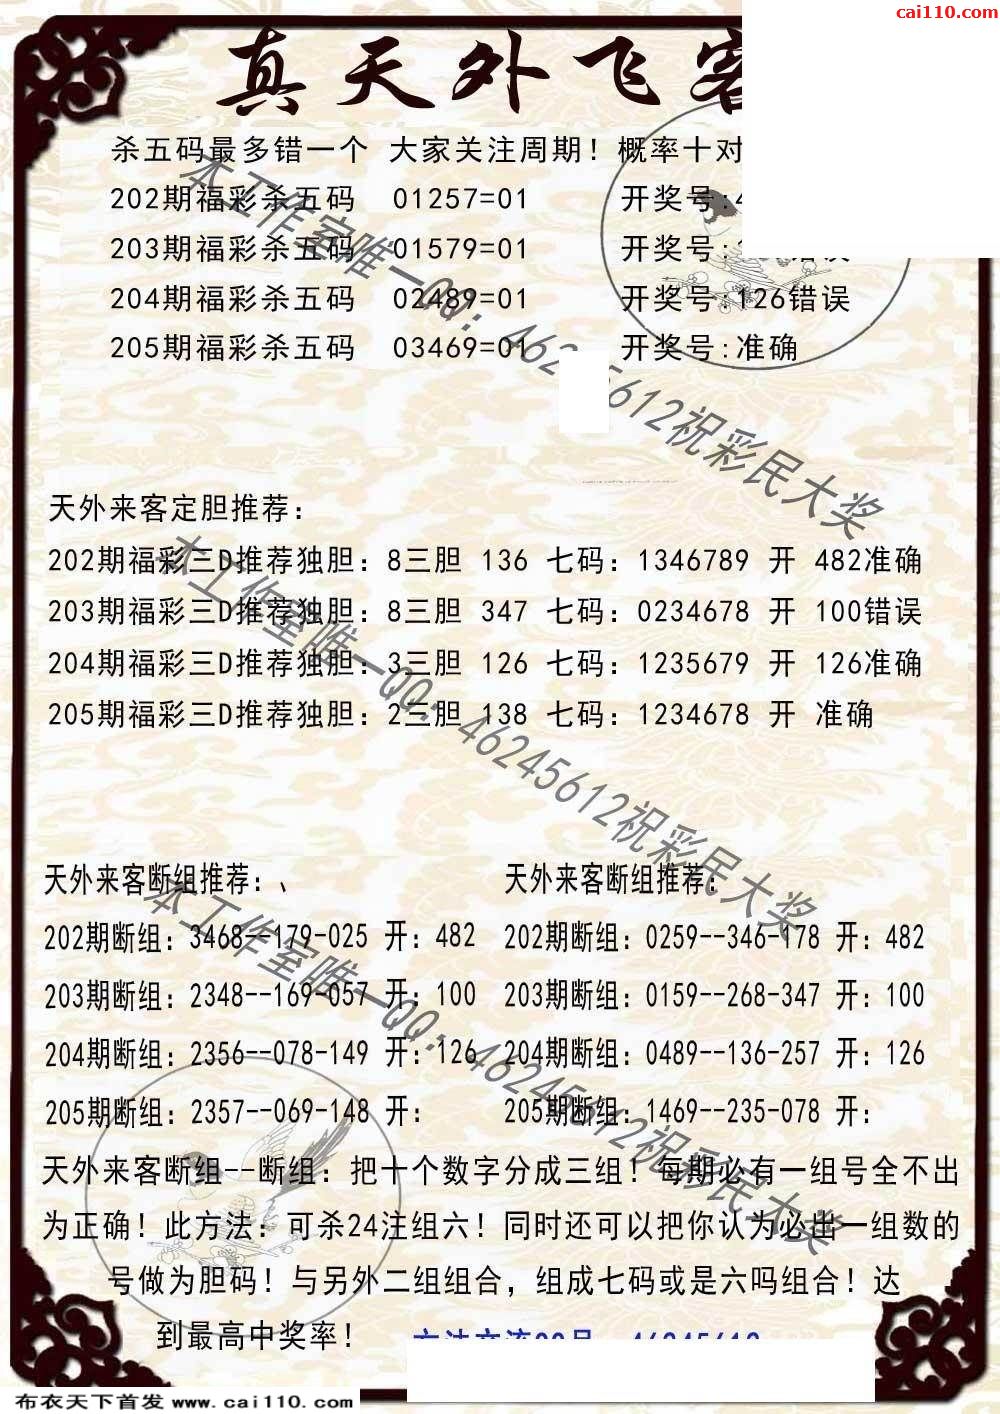 cai110.com
真天外飞客
杀五码最多错一个 大家关注周期！概率十对
202期福彩杀五码 01257=01 开奖号:4
203期福彩杀五码 01579=01 开奖号:
204期福彩杀五码 02489=01 开奖号:126错误
205期福彩杀五码 03469=01 开奖号:准确
天外来客定胆推荐：
202期福彩三D推荐独胆：8三胆 136 七码：1346789 开 482准确
203期福彩三D推荐独胆：8三胆 347 七码：0234678 开 100错误
204期福彩三D推荐独胆：3三胆 126 七码：1235679 开 126准确
205期福彩三D推荐独胆：2三胆 138 七码：1234678 开 准确
天外来客断组推荐：、 天外来客断组推荐：
202期断组：3468--179-025 开：482 202期断组：0259--346-178 开：482
203期断组：2348--169-057 开：100 203期断组：0159--268-347 开：100
204期断组：2356--078-149 开：126 204期断组：0489--136-257 开：126
205期断组：2357--069-148 开： 205期断组：1469--235-078 开：
天外来客断组--断组：把十个数字分成三组！每期必有一组号全不出
为正确！此方法：可杀24注组六！同时还可以把你认为必出一组数的
号做为胆码！与另外二组组合，组成七码或是六吗组合！达
到最高中奖率！
本工作室唯一QQ：46245612祝彩民大奖
本工作室唯一QQ：46245612祝彩民大奖
本工作室唯一QQ：46245612祝彩民大奖
布衣天下首发 www.cai110.com